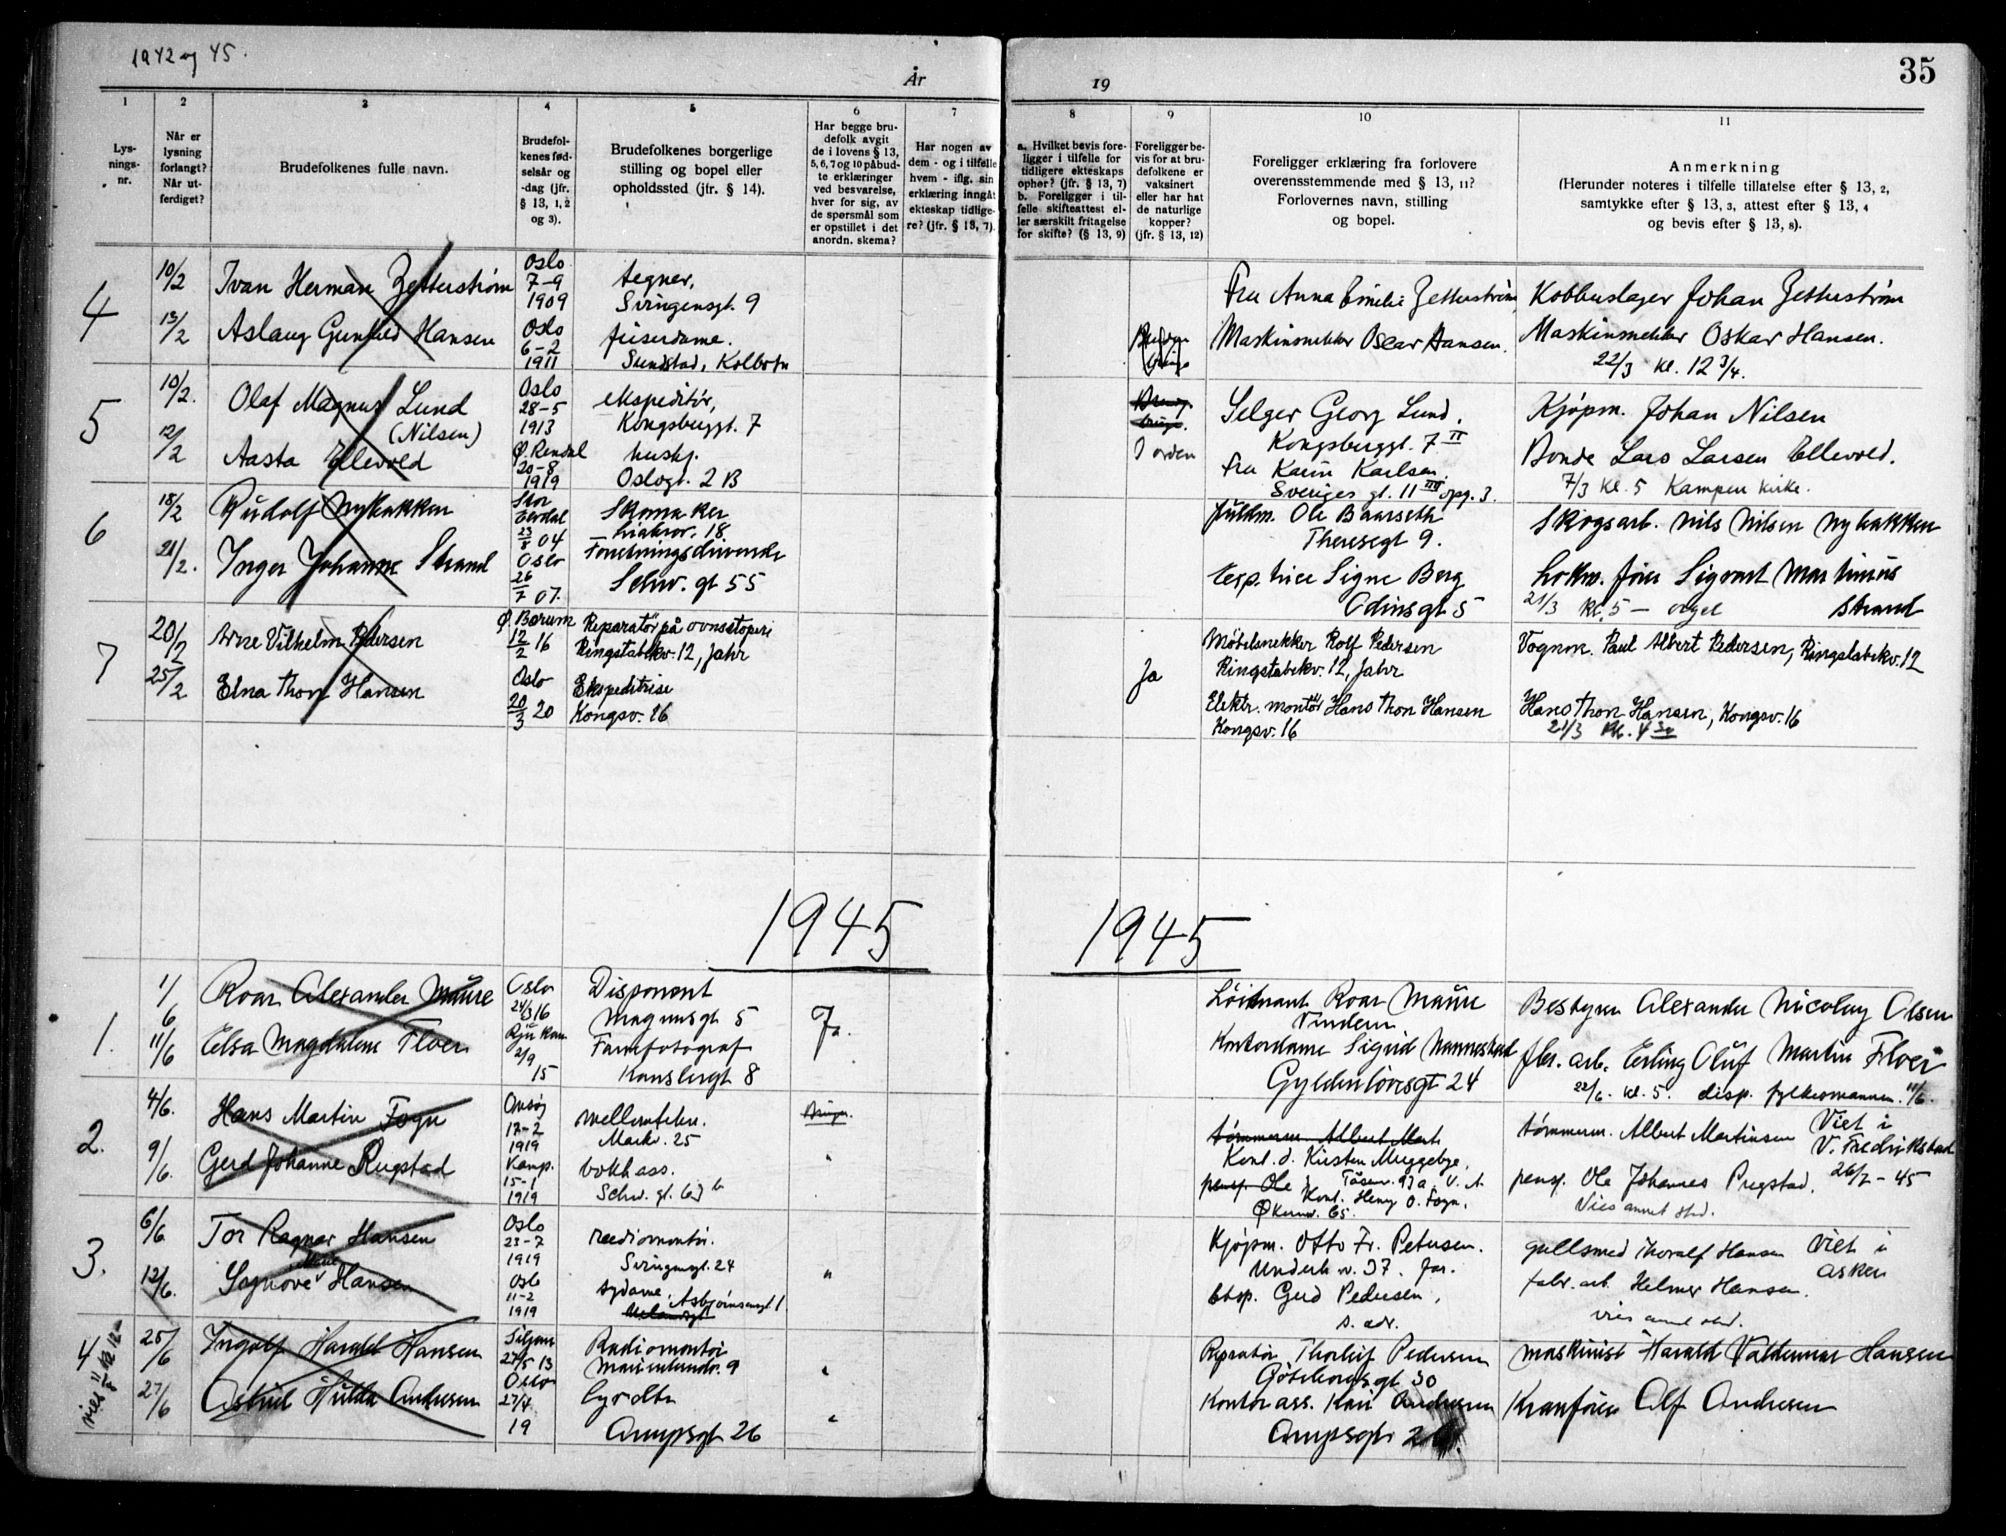 1942 og 45.
År
19
35
1
2
3
4
5
6
7
8
9
10
11
Lys-
nings-
nr.
Når er
lysning
forlangt?
Når ut-
ferdiget?
Brudefolkenes fulle navn.
Brudefol-
kenes fød-
selsår og
-dag (jfr.
§ 13, 1, 2
og 3).
Brudefolkenes borgerlige
stilling og bopel eller
opholdssted (jfr. § 14).
Har begge bru-
defolk avgit
de i lovens § 13,
5, 6, 7 og 10 påbud-
te erklæringer
ved besvarelse,
hver for sig, av
de spørsmål som
er opstillet i det
anordn. skema?
Har nogen av
dem - og i tilfelle
hvem - iflg. sin
erklæring inngåt
ekteskap tidlige-
re? (jfr. § 13, 7).
a. Hvilket bevis fore-
ligger i tilfelle for
tidligere ekteskaps
ophør? (jfr. § 13, 7)
b. Foreligger i til-
felle skifteattest el-
ler særskilt fritagelse
for skifte? (§ 13, 9)
Foreligger be-
vis for at bru-
defolkene er
vaksinert
eller har hat
de naturlige
kopper?
(jfr. § 13, 12)
Foreligger erklæring fra forlovere
overensstemmende med § 13, 11?
Forlovernes navn, stilling
og bopel.
Anmerkning
(Herunder noteres i tilfelle tillatelse efter § 13, 2,
samtykke efter § 13, 3, attest efter § 13, 4
og bevis efter § 13, 8).
4
10/2
Ivan Herman Zetterstrøm
Oslo
7-9
1909
tegner,
Svingensgt. 9
Fru Anna Emilie Zetterstrøm
Kobberslager Johan Zetterstrøm
13/2
Aslaug Gunhild Hansen
Oslo
6-2
1911
friserdame.
Sundstad, Kolbotn
Maskinsmekker Oscar Hansen.
Maskinsmekker Oskar Hansen.
22/3 kl. 12 3/4.
5
10/2.
Olaf Magnus Lund
(Nilsen)
Oslo
28-5
1913
ekspeditør,
Kongsberggt. 7
Selger Georg Lund.
Kongsberggt. 7 II
Kjøpm. Johan Nilsen
12/2
Aasta Ellevold
Ø. Rendal
20-8
1919
hushj.
Oslogt. 2 B
I orden
Fru Karin Karlsen
Sveriges gt. 11 III opg. 3.
Bonde Lars Larsen Ellevold.
7/3 kl. 5 Kampen kirke.
6
18/2
Rudolf Nybakken
Stor
Elvdal
23/8 04
Skomaker
Liabrov. 18.
Fullm. Ole Baarseth
Theresegt 9.
Skogsarb. Nils Nilsen Nybakken
21/2.
Inger Johanne Strand
Oslo
26/7 07.
Forretningsdrivende
Schw. gt 55
Eksp. trice Signe Berg
Odinsgt 5
Lokm. fører Sigvart Martinius
Strand
21/3 kl. 5 - orgel
7
20/2
Arne Vilhelm Pedersen
Ø. Bærum
12/2 16
Reparatør på ovnsstøperi
Ringstabekv. 12, Jahr
Ja
Møbelsnekker Rolf Pedersen
Ringstabekv. 12, Jahr
Vognm. Paul Albert Pedersen, Ringstabekv. 12
25/2
Elna Thon Hansen
Oslo
20/3 20
Ekspeditrise
Kongsv. 16
Elektr. montør Hans Thon Hansen
Kongsv. 16
Hans Thon Hansen, Kongsv. 16
21/3 kl. 4 30
1945
1945
1.
1/6
Roar Alexander Maure
Oslo
24/3 16
Disponent
Magnusgt 5
Ja.
Løitnant Roar Maure
Vinderen
Bestyrer Alexander Nicolay Olsen
11/6
Elsa Magdalene Floer
Rjukan
2/9
15
Farmfotograf
Kanslergt 8
Kontordame Sigrid Mannestad
Gyldenløvesgt 24
fbr. arb. Erling Oluf Martin Floer
22/6. kl. 5. disp. fylkesmannen. 11/6.
2.
4/6.
Hans Martin Fogn
Onsøy
17-2
1919
Markv. 25
tømmerm. Albert Mart.
Kont. d. Kirsten Muggebye,
tømmerm. Albert Martinsen
Viet i
V. Fredrikstad
26/7-45
9/6.
Gerd Johanne Rugstad
Kamp.
15-1
1919
bokh ass.
Schw. gt. 63 b
pensj. Ole
Kont. Henry O. Fogn,
Økernv. 65.
pensj. Ole Johannes Rugstad.
Vies annet sted.
3.
6/6
Tor Ragnar Hansen
Oslo
23-7
1919
radiomontør.
Svingensgt. 24
Kjøpm. Otto Fr. Petersen.
Underh. v. 37. Jar.
gullsmed Thoralf Hansen
Viet i
Asker
12/6.
Synnøve Hansen
Oslo
11-2
1919
sydame, Asbjørnsensgt. 1
Eksp. Gerd Pedersen,
s. adr.
fabr. arb. Helmer Hansen.
vies annet sted.
4
viet 11/8 kl 12
25/6
Ingolf Harald Hansen
Siljan
27/5 13
Radiomontør
Marielundv. 9
Reparatør Thorleif Pedersen
Gøteborggt 30
maskinist Harald Valdemar Hansen
27/6
Astrid Hulda Andresen
Oslo
27/4
19
Syrdtr
Ampsgt 26
Kontorass. Kari Andresen
Ampsgt 26.
Kranfører Alf Andresen